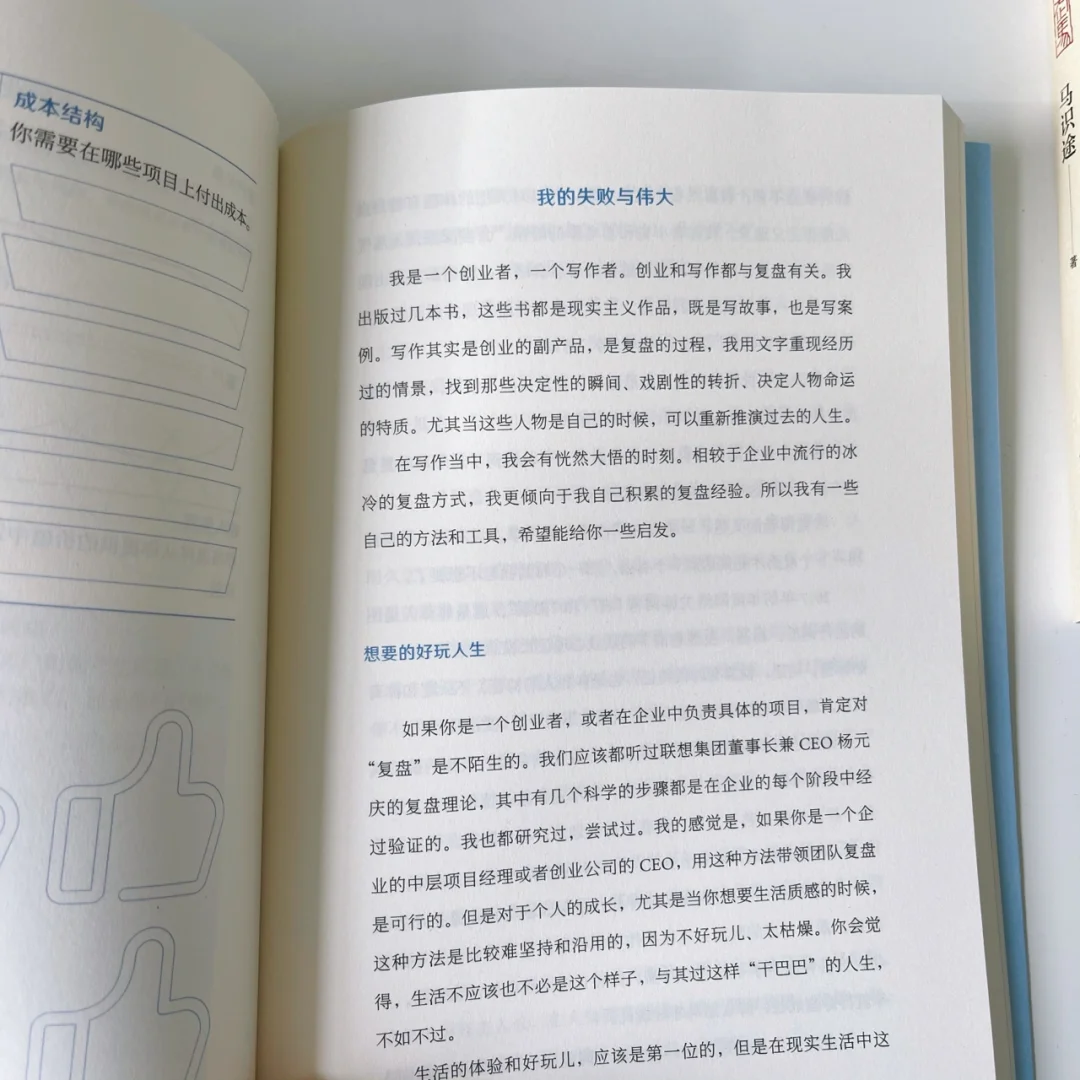 成本结构
你需要在哪些项目上付出成本。
我的失败与伟大
我是一个创业者，一个写作者。创业和写作都与复盘有关。我
出版过几本书，这些书都是现实主义作品，既是写故事，也是写案
例。写作其实是创业的副产品，是复盘的过程，我用文字重现经历
过的情景，找到那些决定性的瞬间、戏剧性的转折、决定人物命运
的特质。尤其当这些人物是自己的时候，可以重新推演过去的人生。
在写作当中，我会有恍然大悟的时刻。相较于企业中流行的冰
冷的复盘方式，我更倾向于我自己积累的复盘经验。所以我有一些
自己的方法和工具，希望能给你一些启发。
想要的好玩人生
如果你是一个创业者，或者在企业中负责具体的项目，肯定对
“复盘”是不陌生的。我们应该都听过联想集团董事长兼 CEO 杨元
庆的复盘理论，其中有几个科学的步骤都是在企业的每个阶段中经
过验证的。我也都研究过，尝试过。我的感觉是，如果你是一个企
业的中层项目经理或者创业公司的 CEO，用这种方法带领团队复盘
是可行的。但是对于个人的成长，尤其是当你想要生活质感的时候，
这种方法是比较难坚持和沿用的，因为不好玩儿、太枯燥。你会觉
得，生活不应该也不必是这个样子，与其过这样“干巴巴”的人生，
不如不过。
生活的体验和好玩儿，应该是第一位的，但是在现实生活中这
马识途
著